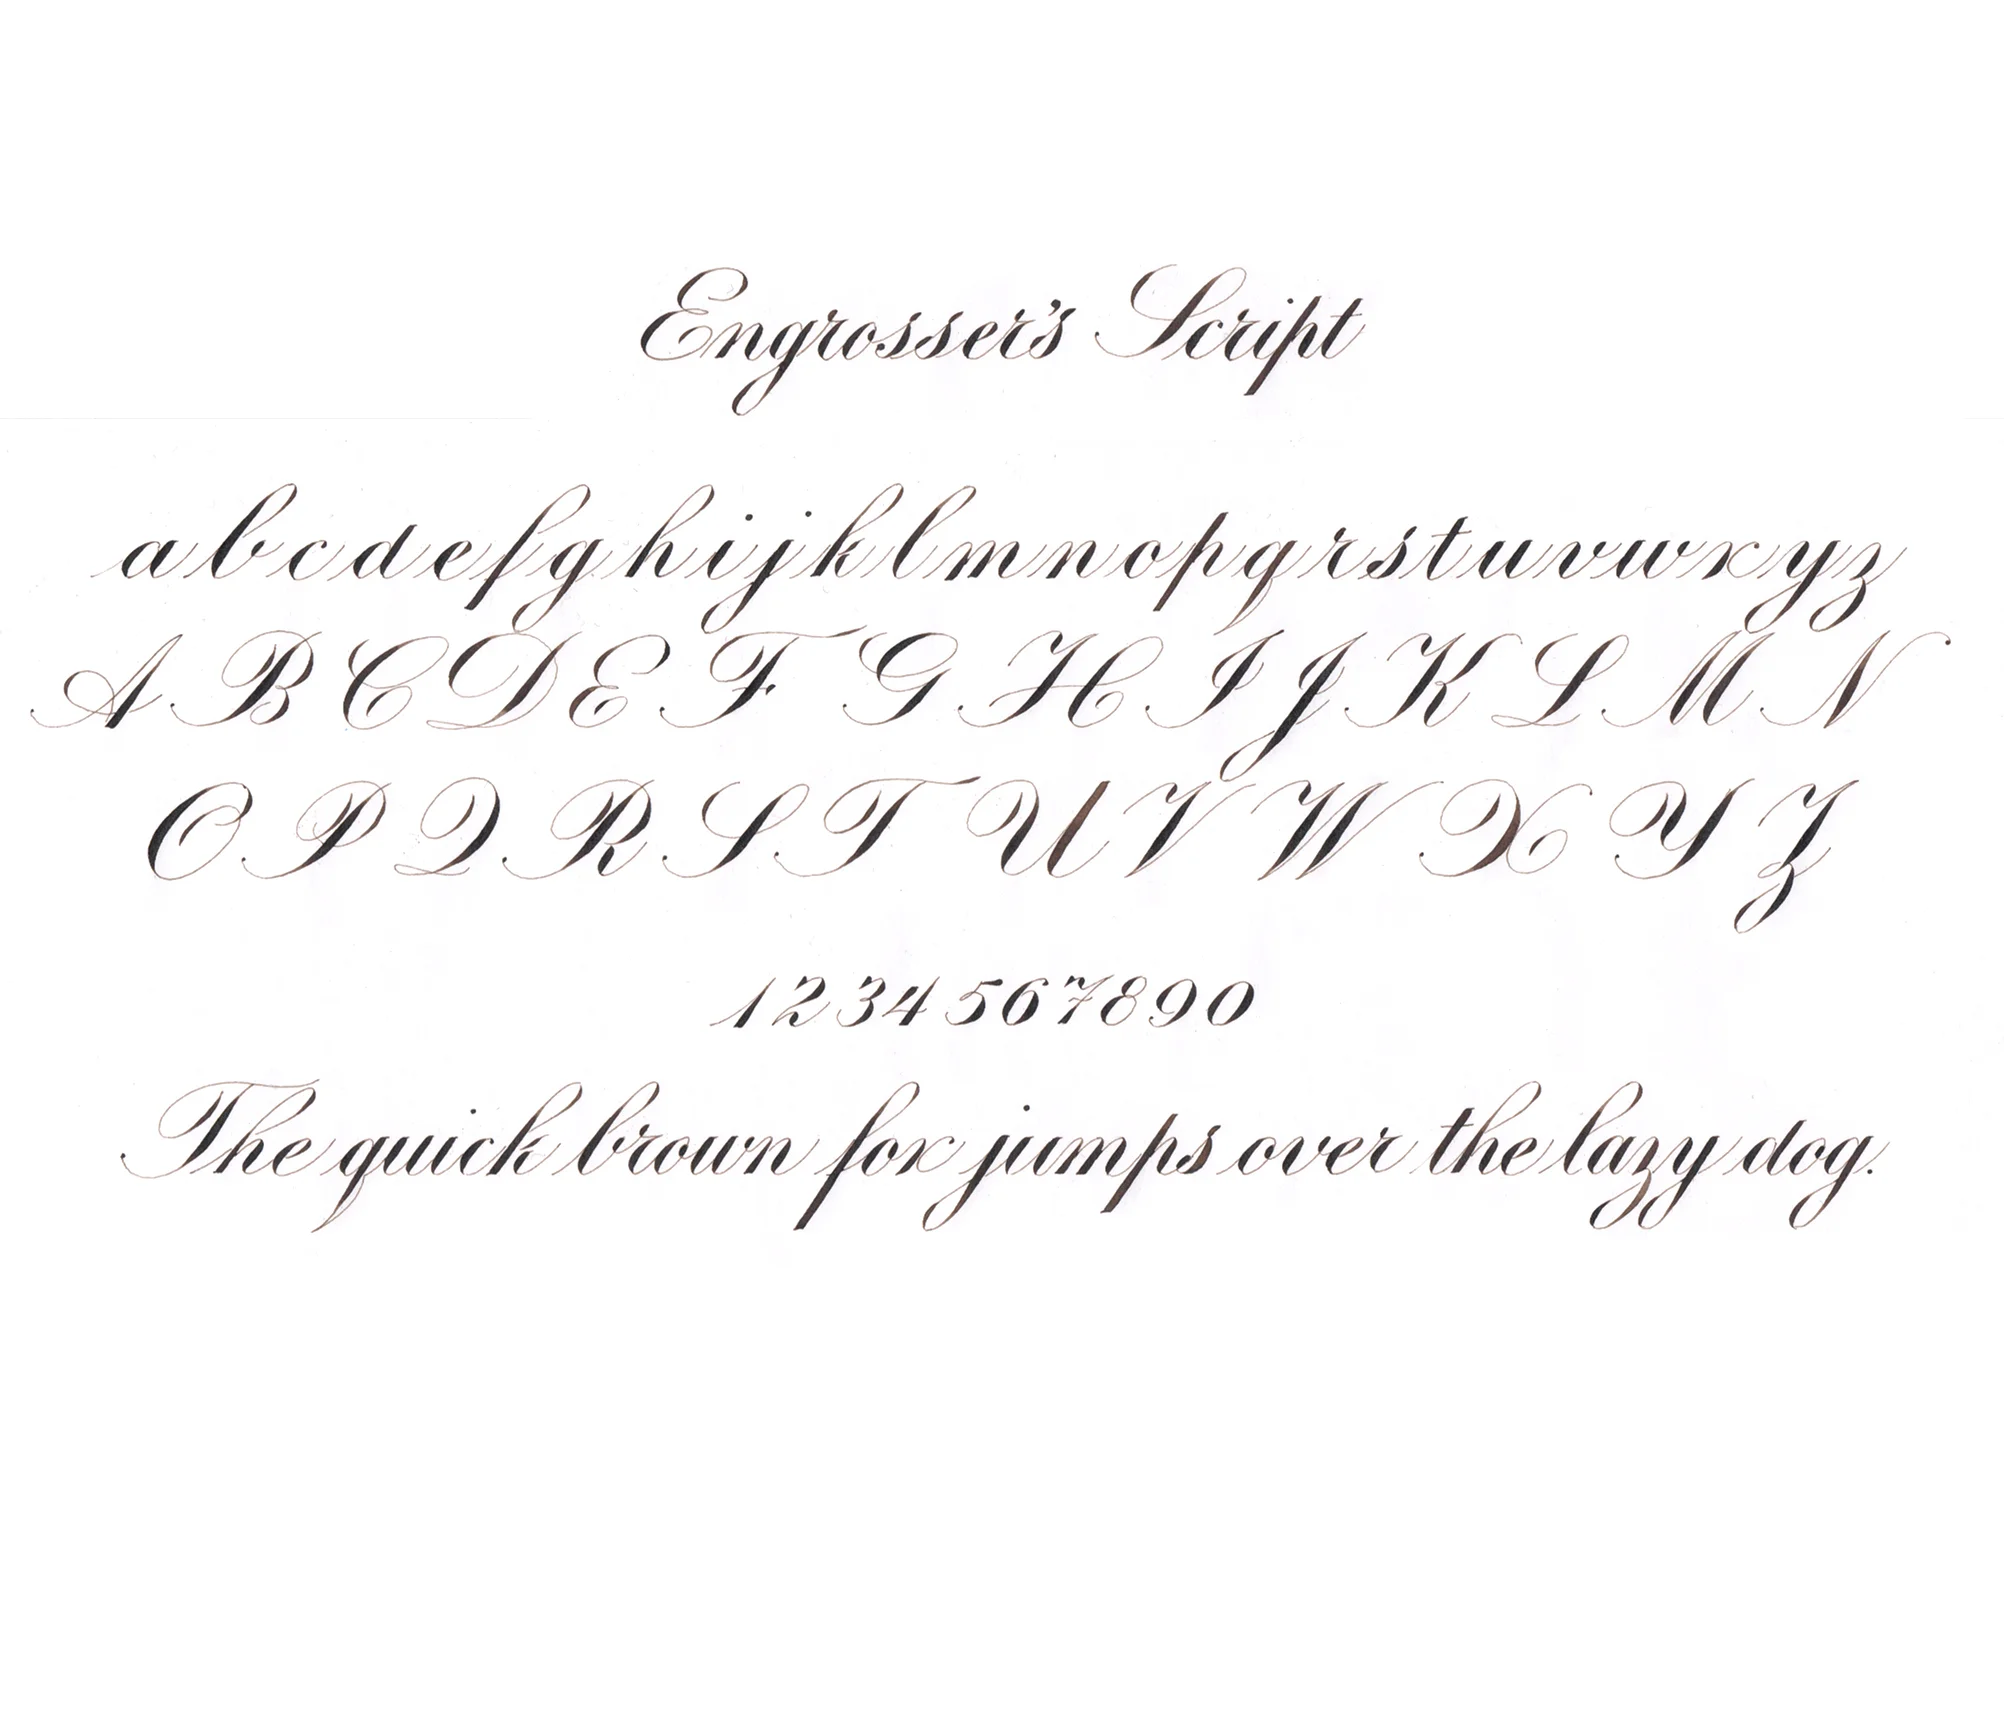 Engrosser's Script
a b c d e f g h i j k l m n o p q r s t u v w x y z
A B C D E F G H I J K L M N
O P Q R S T U V W X Y Z
1 2 3 4 5 6 7 8 9 0
The quick brown fox jumps over the lazy dog.